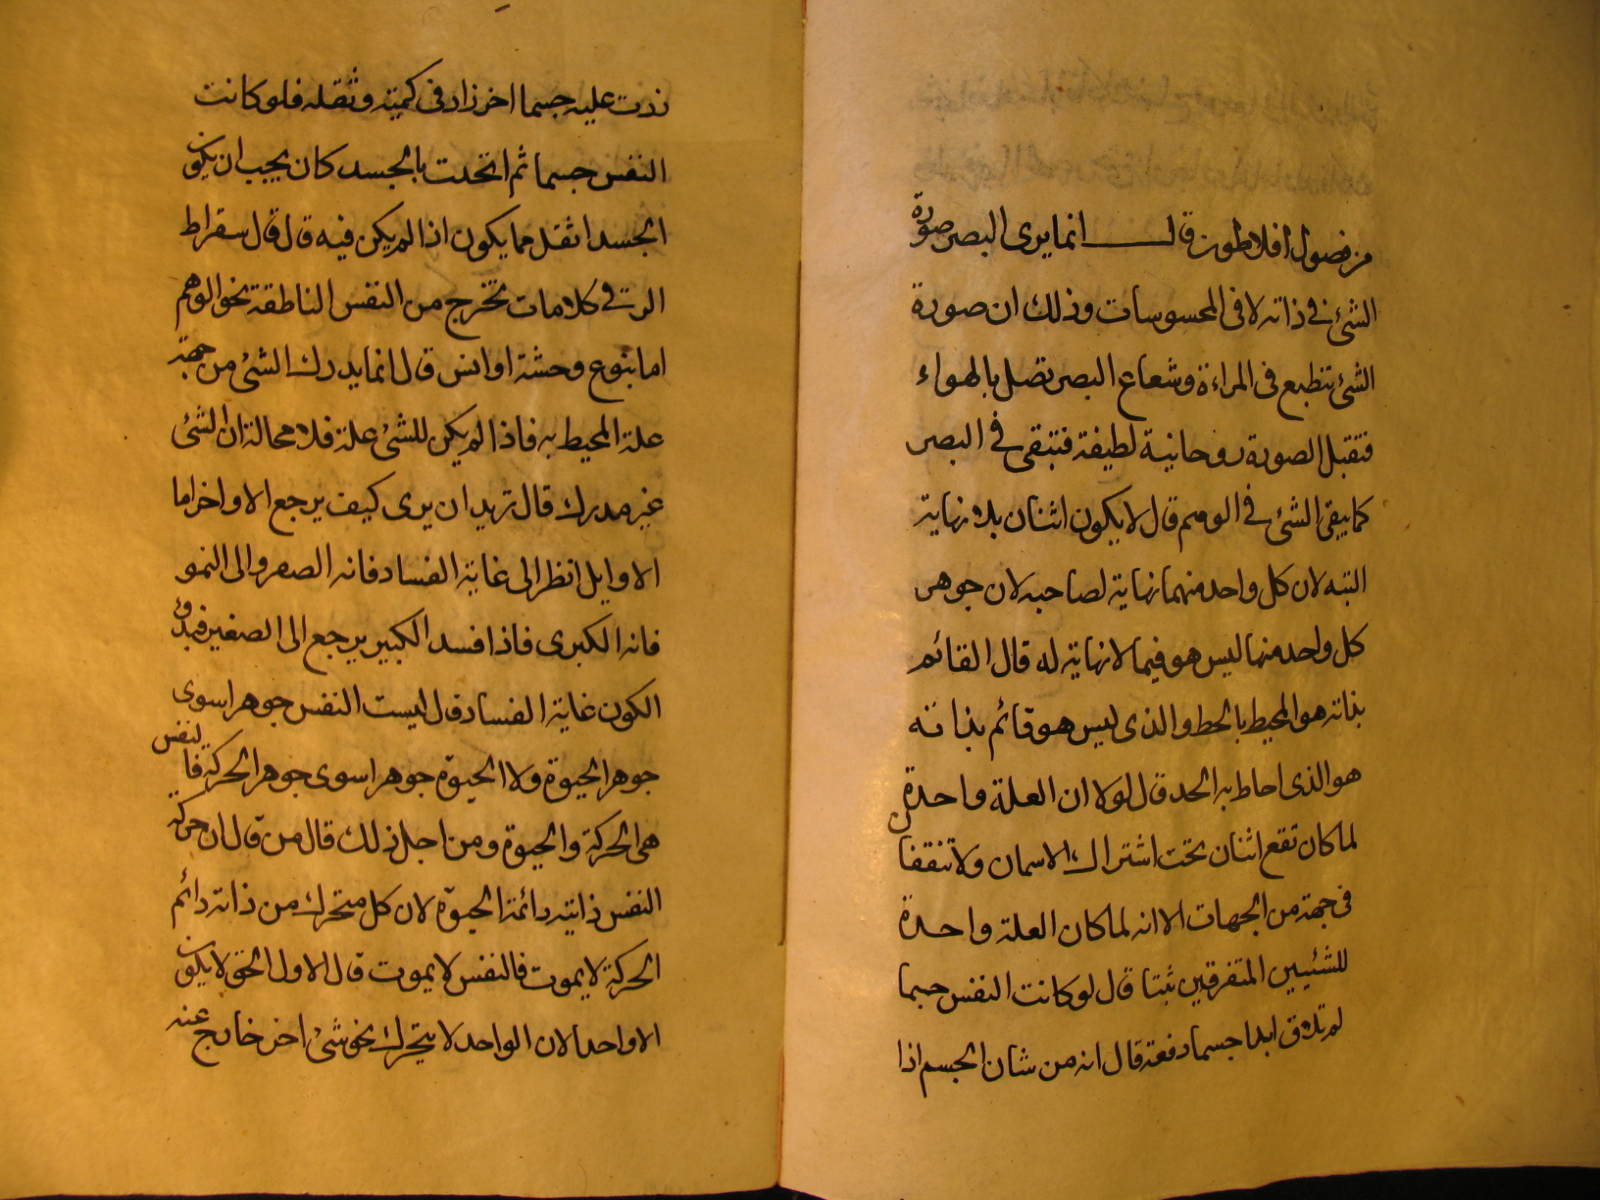 من فصول افلاطون قال انما يرى البصر صورة
الشئ في ذاته لا فى المحسوسات وذلك ان صورة
الشئ تنطبع فى المراءة وشعاع البصر تصل بالهواء
فتقبل الصورة روحانية لطيفة فتبقى فى البصر
كما يبقى الشئ فى الوهم قال لا يكون اثنان بلا نهاية
البته لان كل واحد منهما نهاية لصاحبه لان جوهر
كل واحد منها ليس هو فيما لا نهاية له قال القائم
بذاته هو المحيط بالحط والذى ليس هو قائم بذاته
هو الذى احاط به الحد قال لولا ان العلة واحدة
لما كان تقع اثنان تحت اشتراك الاسمان ولا تنفقا
فى جهة من الجهات الا انه لما كان العلة واحدة
للشئيين المتفرقين ثبتا قال لو كانت النفس جسما
لم تلاق ابدا جسما دفعة قال انه من شان الجسم اذا
زدت عليه جسما اخر زاد فى كميته وثقله فلو كانت
النفس جسما ثم اتحدت بالجسد كان يجب ان يكون
الجسد اثقل مما يكون اذا لم يكن فيه قال قال سقراط
فى كلامات تخرج من النفس الناطقة نحو الوهم
اما بنوع وحشة او انس قال انما يدرك الشئ من جهة
علة المحيط به فاذا لم يكن للشئ علة فلا محالة ان الشئ
غير مدرك قال تريد ان يرى كيف يرجع الاواخر اما
الاوايل انظر الى غاية الفساد فانه الصغر والى النمو
فانه الكبرى فاذا فسد الكبير يرجع الى الصغير
الكون غاية الفساد قال ليست النفس جوهرا سوى
جوهر الحيوة ولا الحيوة جوهرا سوى جوهر الحركة فالنفس
هى الحركة والحيوة ومن اجل ذلك قال من قال ان حركة
النفس ذاتية دائمة الحيوة لان كل متحرك من ذاته دائم
الحركة لا يموت فالنفس لا يموت قال الاول الحق لا يكون
الا واحدا لان الواحد لا يتحرك نحو شئ اخر خارج عنه